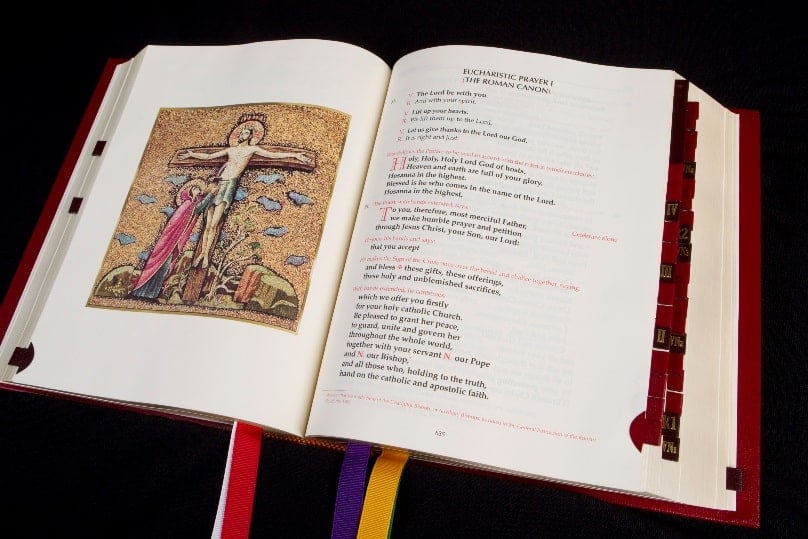 EUCHARISTIC PRAYER I
(THE ROMAN CANON)
V. The Lord be with you.
R. And with your spirit.
V. Lift up your hearts.
R. We lift them up to the Lord.
V. Let us give thanks to the Lord our God.
R. It is right and just.
Holy, Holy, Holy Lord God of hosts.
Heaven and earth are full of your glory.
Hosanna in the highest.
Blessed is he who comes in the name of the Lord.
Hosanna in the highest.
The Priest, with hands extended, says:
To you, therefore, most merciful Father,
we make humble prayer and petition
through Jesus Christ, your Son, our Lord:
Celebrant alone
He joins his hands and says:
that you accept
He makes the Sign of the Cross once over the bread and chalice together, saying:
and bless ✠ these gifts, these offerings,
these holy and unblemished sacrifices,
With hands extended, he continues:
which we offer you firstly
for your holy catholic Church.
Be pleased to grant her peace,
to guard, unite and govern her
throughout the whole world,
together with your servant N. our Pope
and N. our Bishop,
and all those who, holding to the truth,
hand on the catholic and apostolic faith.
635
IV
III
II
R1